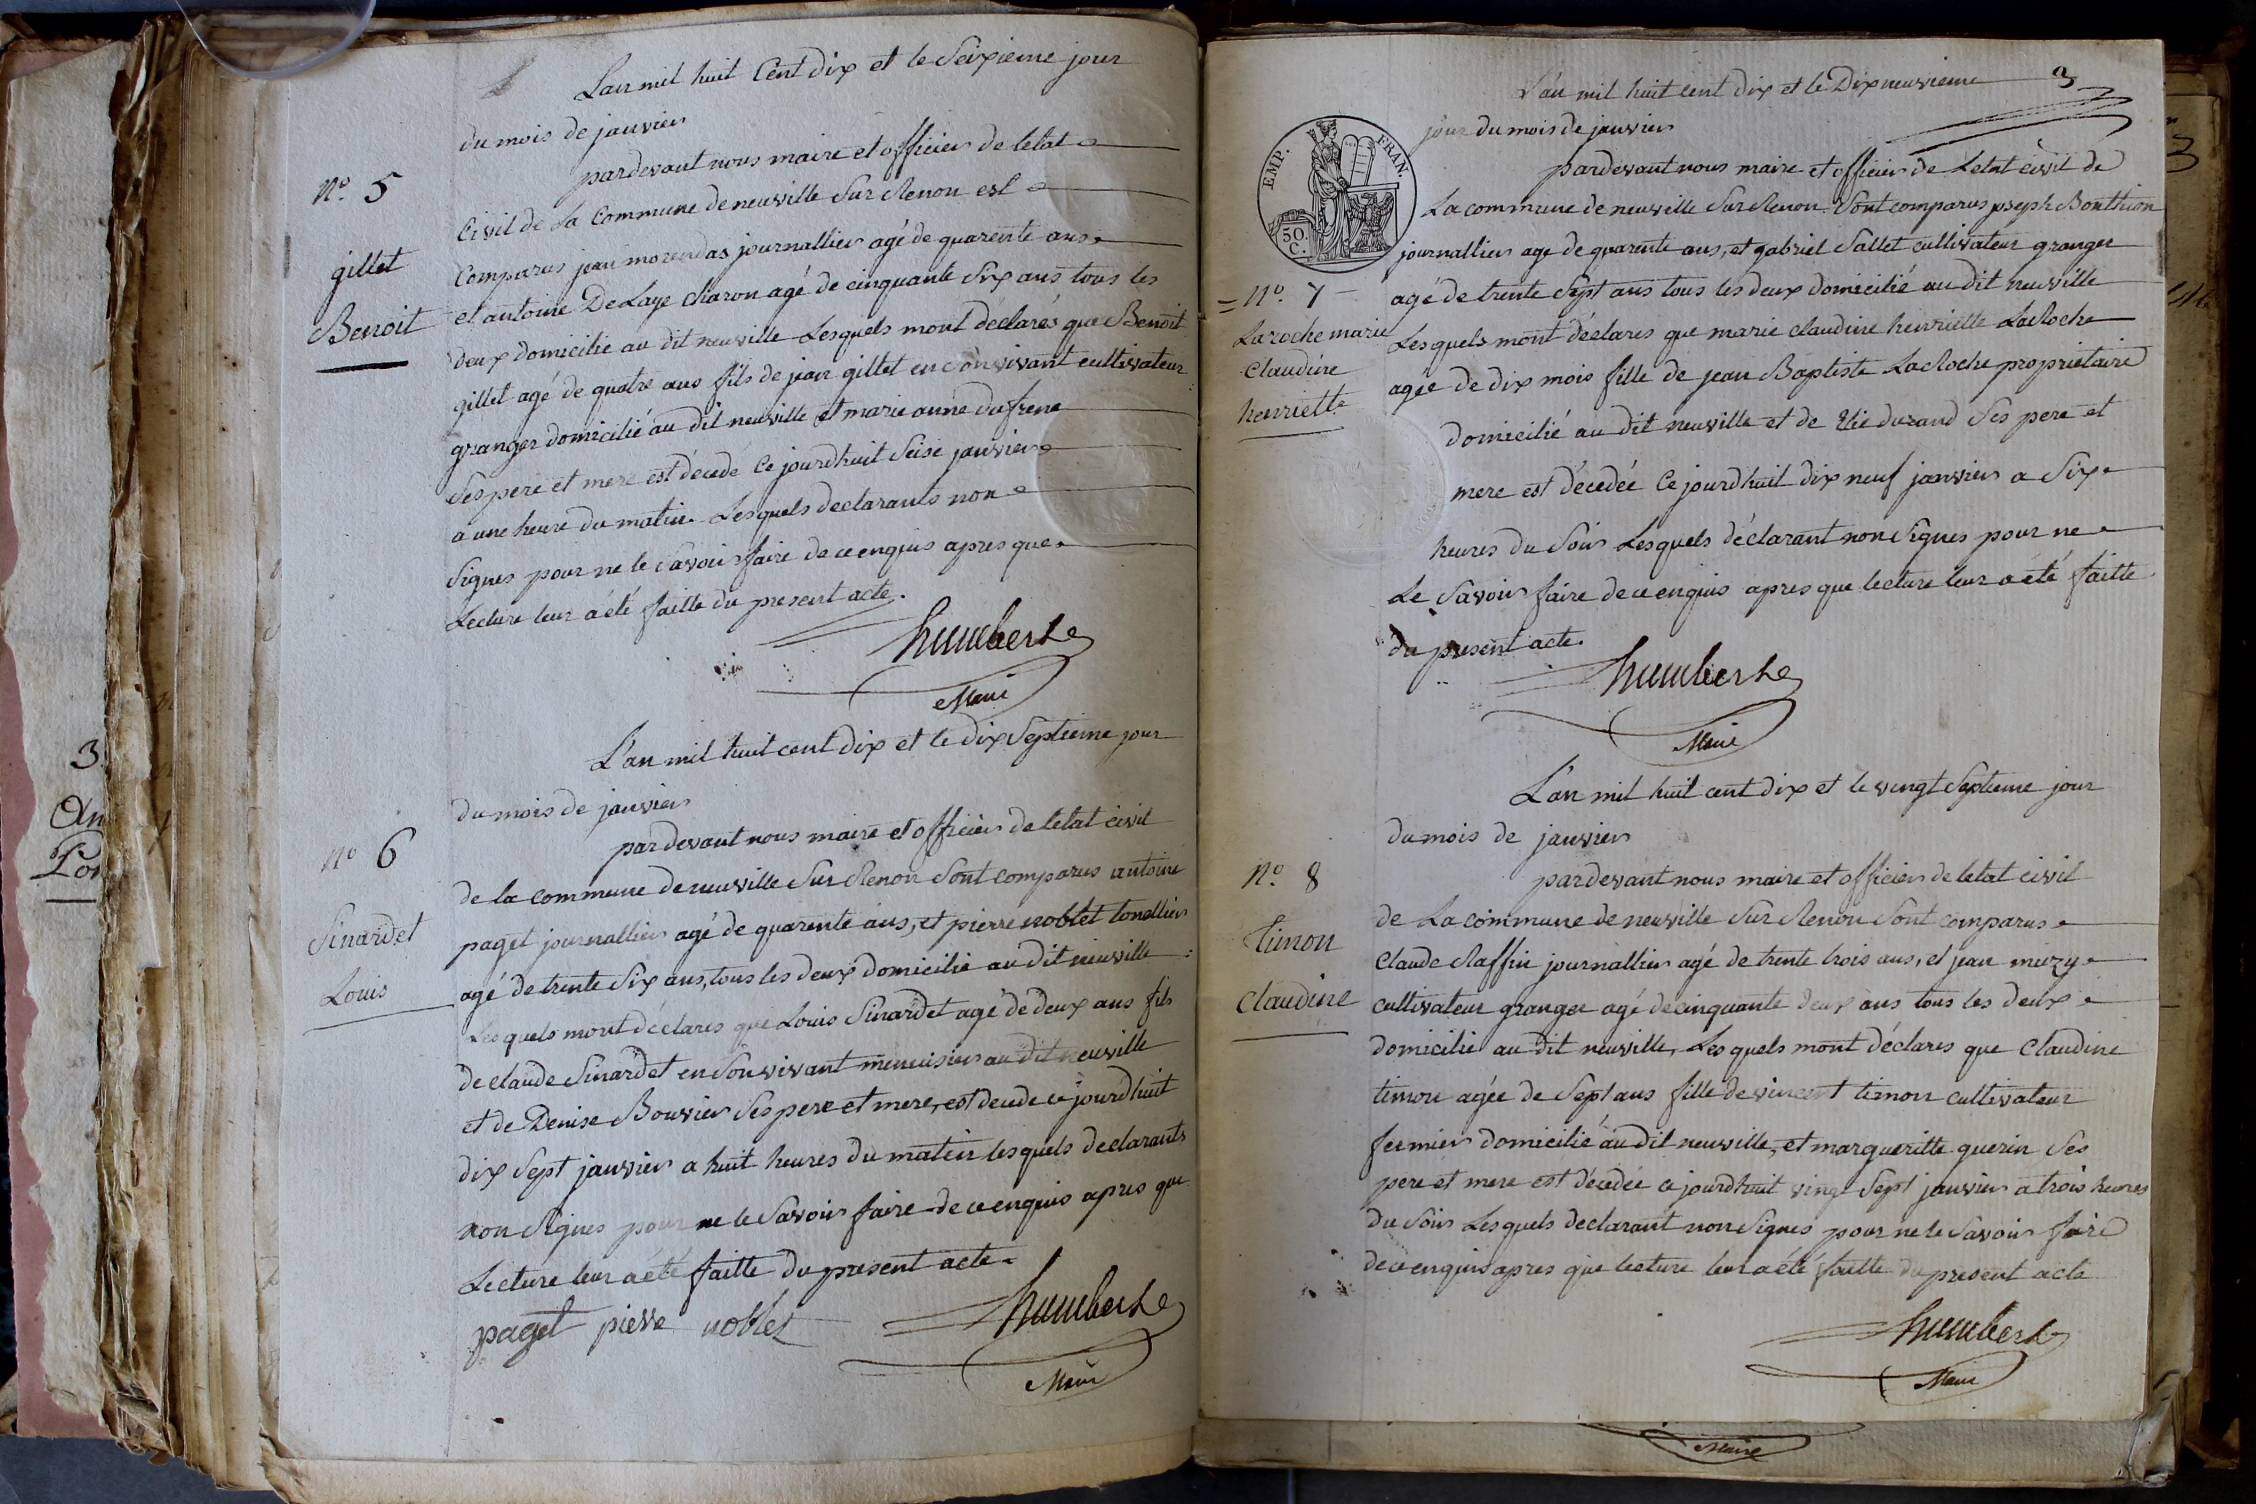 Lan mil huit Cent dix et le Seizieme jour
du mois de janvier
pardevant nous maire et officier de letat
N.o 5
Civil de La Commune de neuville Sur Renon est
gillet
Benoit
Comparus jean morendas journallier agé de quarente ans
et antoine DeLaye charon agé de cinquante Six ans tous les
deux domicilié au dit neuville Lesquels mont déclarés que Benoit
gillet agé de quatre ans fils de jean gillet en convivant cultivateur
granger domicilié au dit neuville et marie anne dufrene
Ses pere et mere est décedé Ce jourdhuit Seise janvier
a une heure du matin. Lesquels declarants non
Signes pour ne le Savoir faire de ce enquis apres que
Lecture leur a été faitte du present acte.
humbert
Maire
L'an mil huit cent dix et le dix Septieme jour
du mois de janvier
pardevant nous maire et officier de letat civil
No 6
de la commune de neuville Sur Renon Sont comparus antoine
Sinardet
Louis
paget journallier agé de quarente ans, et pierre noblet tonellier
agé de trente Six ans, tous les deux domicilié au dit neuville
Lesquels mont déclares que Louis Sinardet agé de deux ans fils
de claude Sinardet en Son vivant menuisier au dit neuville
et de Denise Bouvier Ses pere et mere, est decede ce jourdhuit
dix Sept janvier a huit heures du matin lesquels declarants
non Signes pour ne le Savoir faire de ce enquis apres que
Lecture leur a été faitte du present acte
paget pierre noblet
humbert
Maire
3
L'an mil huit cent dix et le Dix neuvieme
jour du mois de janvier
EMP. FRAN.
50. C.
pardevant nous maire et officier de Letat civil de
La commune de neuville Sur Renon Sont comparus joseph Bonthion
journallier age de quarente ans, et gabriel Sallet cultivateur granger
N.o 7
Laroche marie
Claudine
henriette
agé de trente Sept ans tous les deux domicilié au dit neuville
Lesquels mont déclares que marie claudine henriette LaRoche
agée de dix mois fille de jean Baptiste LaRoche proprietaire
domicilié au dit neuville et de durand Ses pere et
mere est décedée Ce jourdhuit dix neuf janvier a Six
heures du Soir Lesquels déclarant non Signes pour ne
Le Savoir faire de ce enquis apres que lecture leur a été faitte
du present acte.
humbert
Maire
L'an mil huit cent dix et le vingt Septieme jour
du mois de janvier
N.o 8
pardevant nous maire et officier de letat civil
de La commune de neuville Sur Renon Sont comparus
timon
Claudine
Claude Raffin journallier agé de trente trois ans, et jean muzy
cultivateur granger agé de cinquante deux ans tous les deux
domicilié au dit neuville, Lesquels mont déclares que Claudine
timon agée de Sept ans fille de vincent timon cultivateur
fermier domicilié au dit neuville, et margueritte guerin Ses
pere et mere est décedée ce jourdhuit vingt Sept janvier a trois heures
du Soir Lesquels declarant non Signes pour ne le Savoir faire
de ce enquis apres que lecture leur a été faitte du present acte
humbert
Maire
Maire